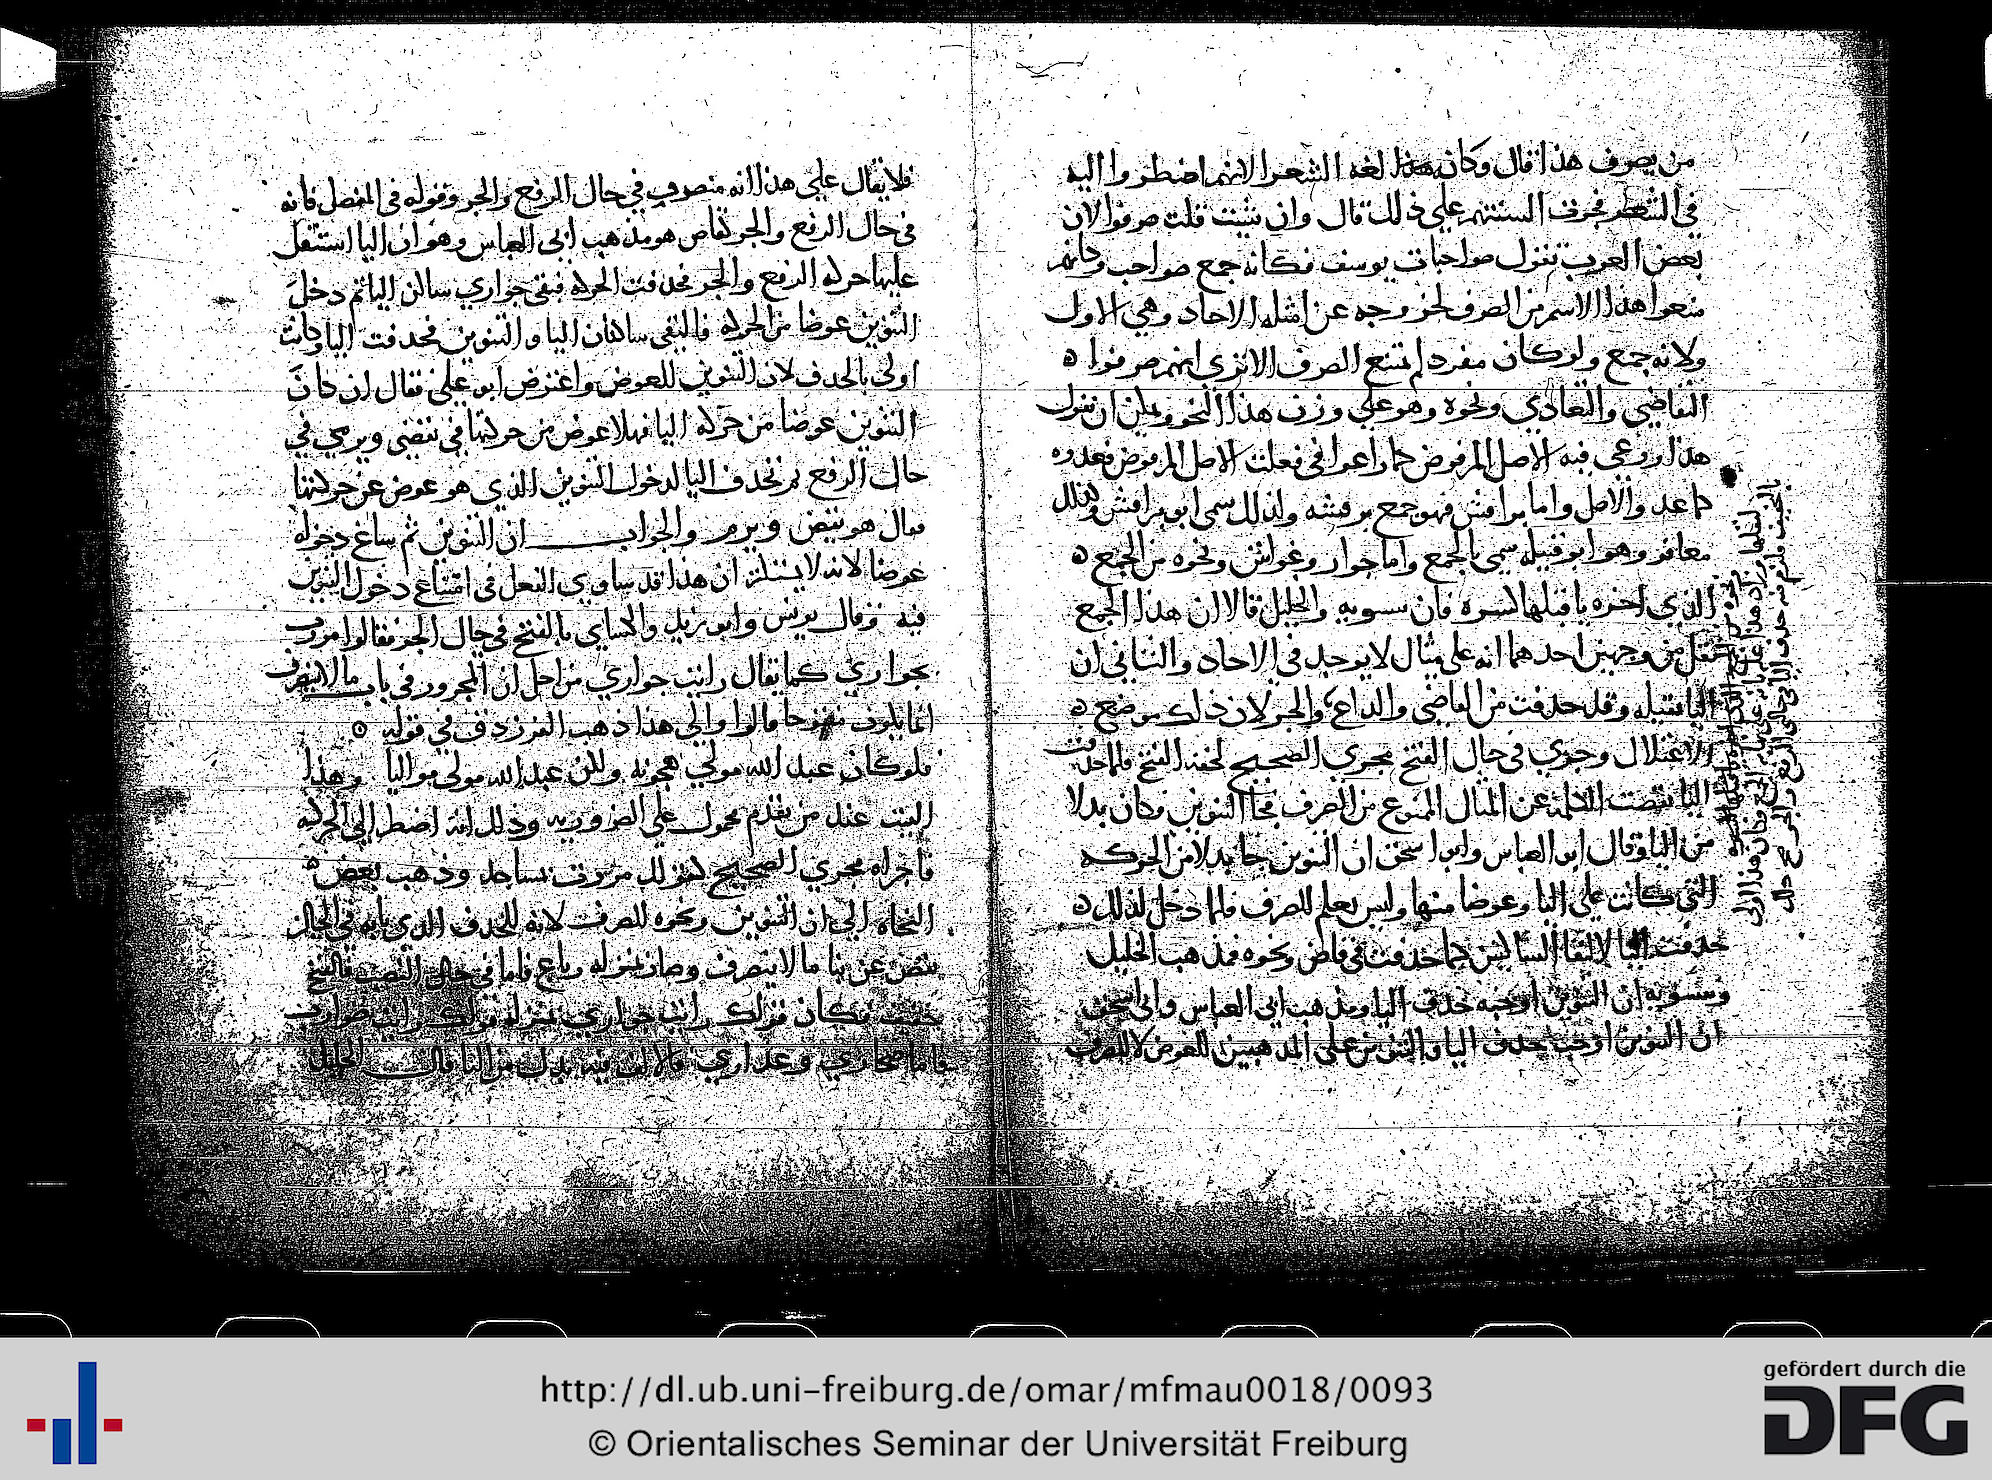 من يصرف هذا قال وكان هذا لغه الشعرا لانهم اضطروا اليه
في الشعر فجرت السنتهم على ذلك قال وان شيت قلت صرفوا لان
بعض العرب تقول صواحبات يوسف فكانه جمع صواحب وكانهم
منعوا هذا الاسم من الصرف لخروجه عن امثله الاحاد وهي الاول
ولانه جمع ولو كان مفردا لم تمنع الصرف الا تري انهم صرفوا
التقاضي والتعادي ونحوه وهو على وزن هذا النحو ويمكن ان تقول
هذا روعي فيه الاصل المرفوض كما راعوا في فعلت الاصل المرفوض فعدوه
كما عدوا الاصل واما براقش فهو جمع برقشه ولذلك سمى ابو براقش وكذلك
معافر وهو ابو قبيله سمي بالجمع واما جوار وغواش ونحوه من الجمع
الذي اخره يا قبلها كسره فان سيبويه والخليل قالا ان هذا الجمع
ثقل من وجهين احدهما انه على مثال لا يوجد في الاحاد والثاني ان
اليا ثقيله وقد حذفت من القاضي والداع والجر لان ذلك موضع
الاعتلال وجري في حال الفتح مجري الصحيح لخفه الفتح فلما حذفت
اليا نقصت الكلمه عن المثال الممنوع من الصرف فجا التنوين وكان بدلا
من اليا وقال ابو العباس وابو اسحق ان التنوين جا بدلا من الحركه
التي كانت على اليا وعوضا منها وليس بعلم للصرف فلما دخل لذلك
حذفت اليا لالتقا الساكنين كما حذفت في قاض ونحوه فمذهب الخليل
وسيبويه ان التنوين اوجبه حذف اليا ومذهب ابي العباس وابي اسحق
ان التنوين اوجب حذف اليا والتنوين على المذهبين للعوض لا للصرف
فلا يقال على هذا انه منصرف في حال الرفع والجر وقوله في المفصل فانه
في حال الرفع والجر كقاض هو مذهب ابي العباس وهو ان اليا استثقل
عليها حركه الرفع والجر فحذفت الحركه فبقي جواري ساكن اليا ثم دخل
التنوين عوضا من الحركه فالتقى ساكنان اليا والتنوين فحذفت اليا وكانت
اولى بالحذف لان التنوين للعوض واعترض ابو علي فقال ان كان
التنوين عوضا من حركه اليا فهلا عوض من حركتها في يقضي ويرمي في
حال الرفع ثم تحذف اليا لدخول التنوين الذي هو عوض عن حركتها
فيقال هو يقض ويرم والجواب ان التنوين ثم ساغ دخوله
عوضا لانه لا يستلزم ان هذا قد ساوي الفعل في امتناع دخول التنوين
فيه وقال يونس وابو زيد والكساي بالفتح في حال الجر فقالوا مررت
بجواري كما يقال رايت جواري من اجل ان المجرور في باب ما لا ينصرف
انما يكون مفتوحا قالوا والى هذا ذهب الفرزدق في قوله
فلو كان عبد الله مولى هجوته ولكن عبد الله مولى مواليا وهذا
البيت عند من يقدم محمول على الضروره وذلك انه اضطر الى الحركه
فاجراه مجري الصحيح كقولك مررت بمساجد وذهب بعض
النحاه الى ان التنوين ونحوه للصرف لانه للحذف الذي نابه في الحال
نقص عن بنا ما لا ينصرف وصار بمنزله رباع فاما في حال النصب فالفتح
خفيف فكان قولك رايت جواري بمنزله قولك رايت ضوارب
فاما صحاري وعذاري فالالف فيه بدل من اليا قال الخليل
http://dl.ub.uni-freiburg.de/omar/mfmau0018/0093
© Orientalisches Seminar der Universität Freiburg
gefördert durch die
DFG